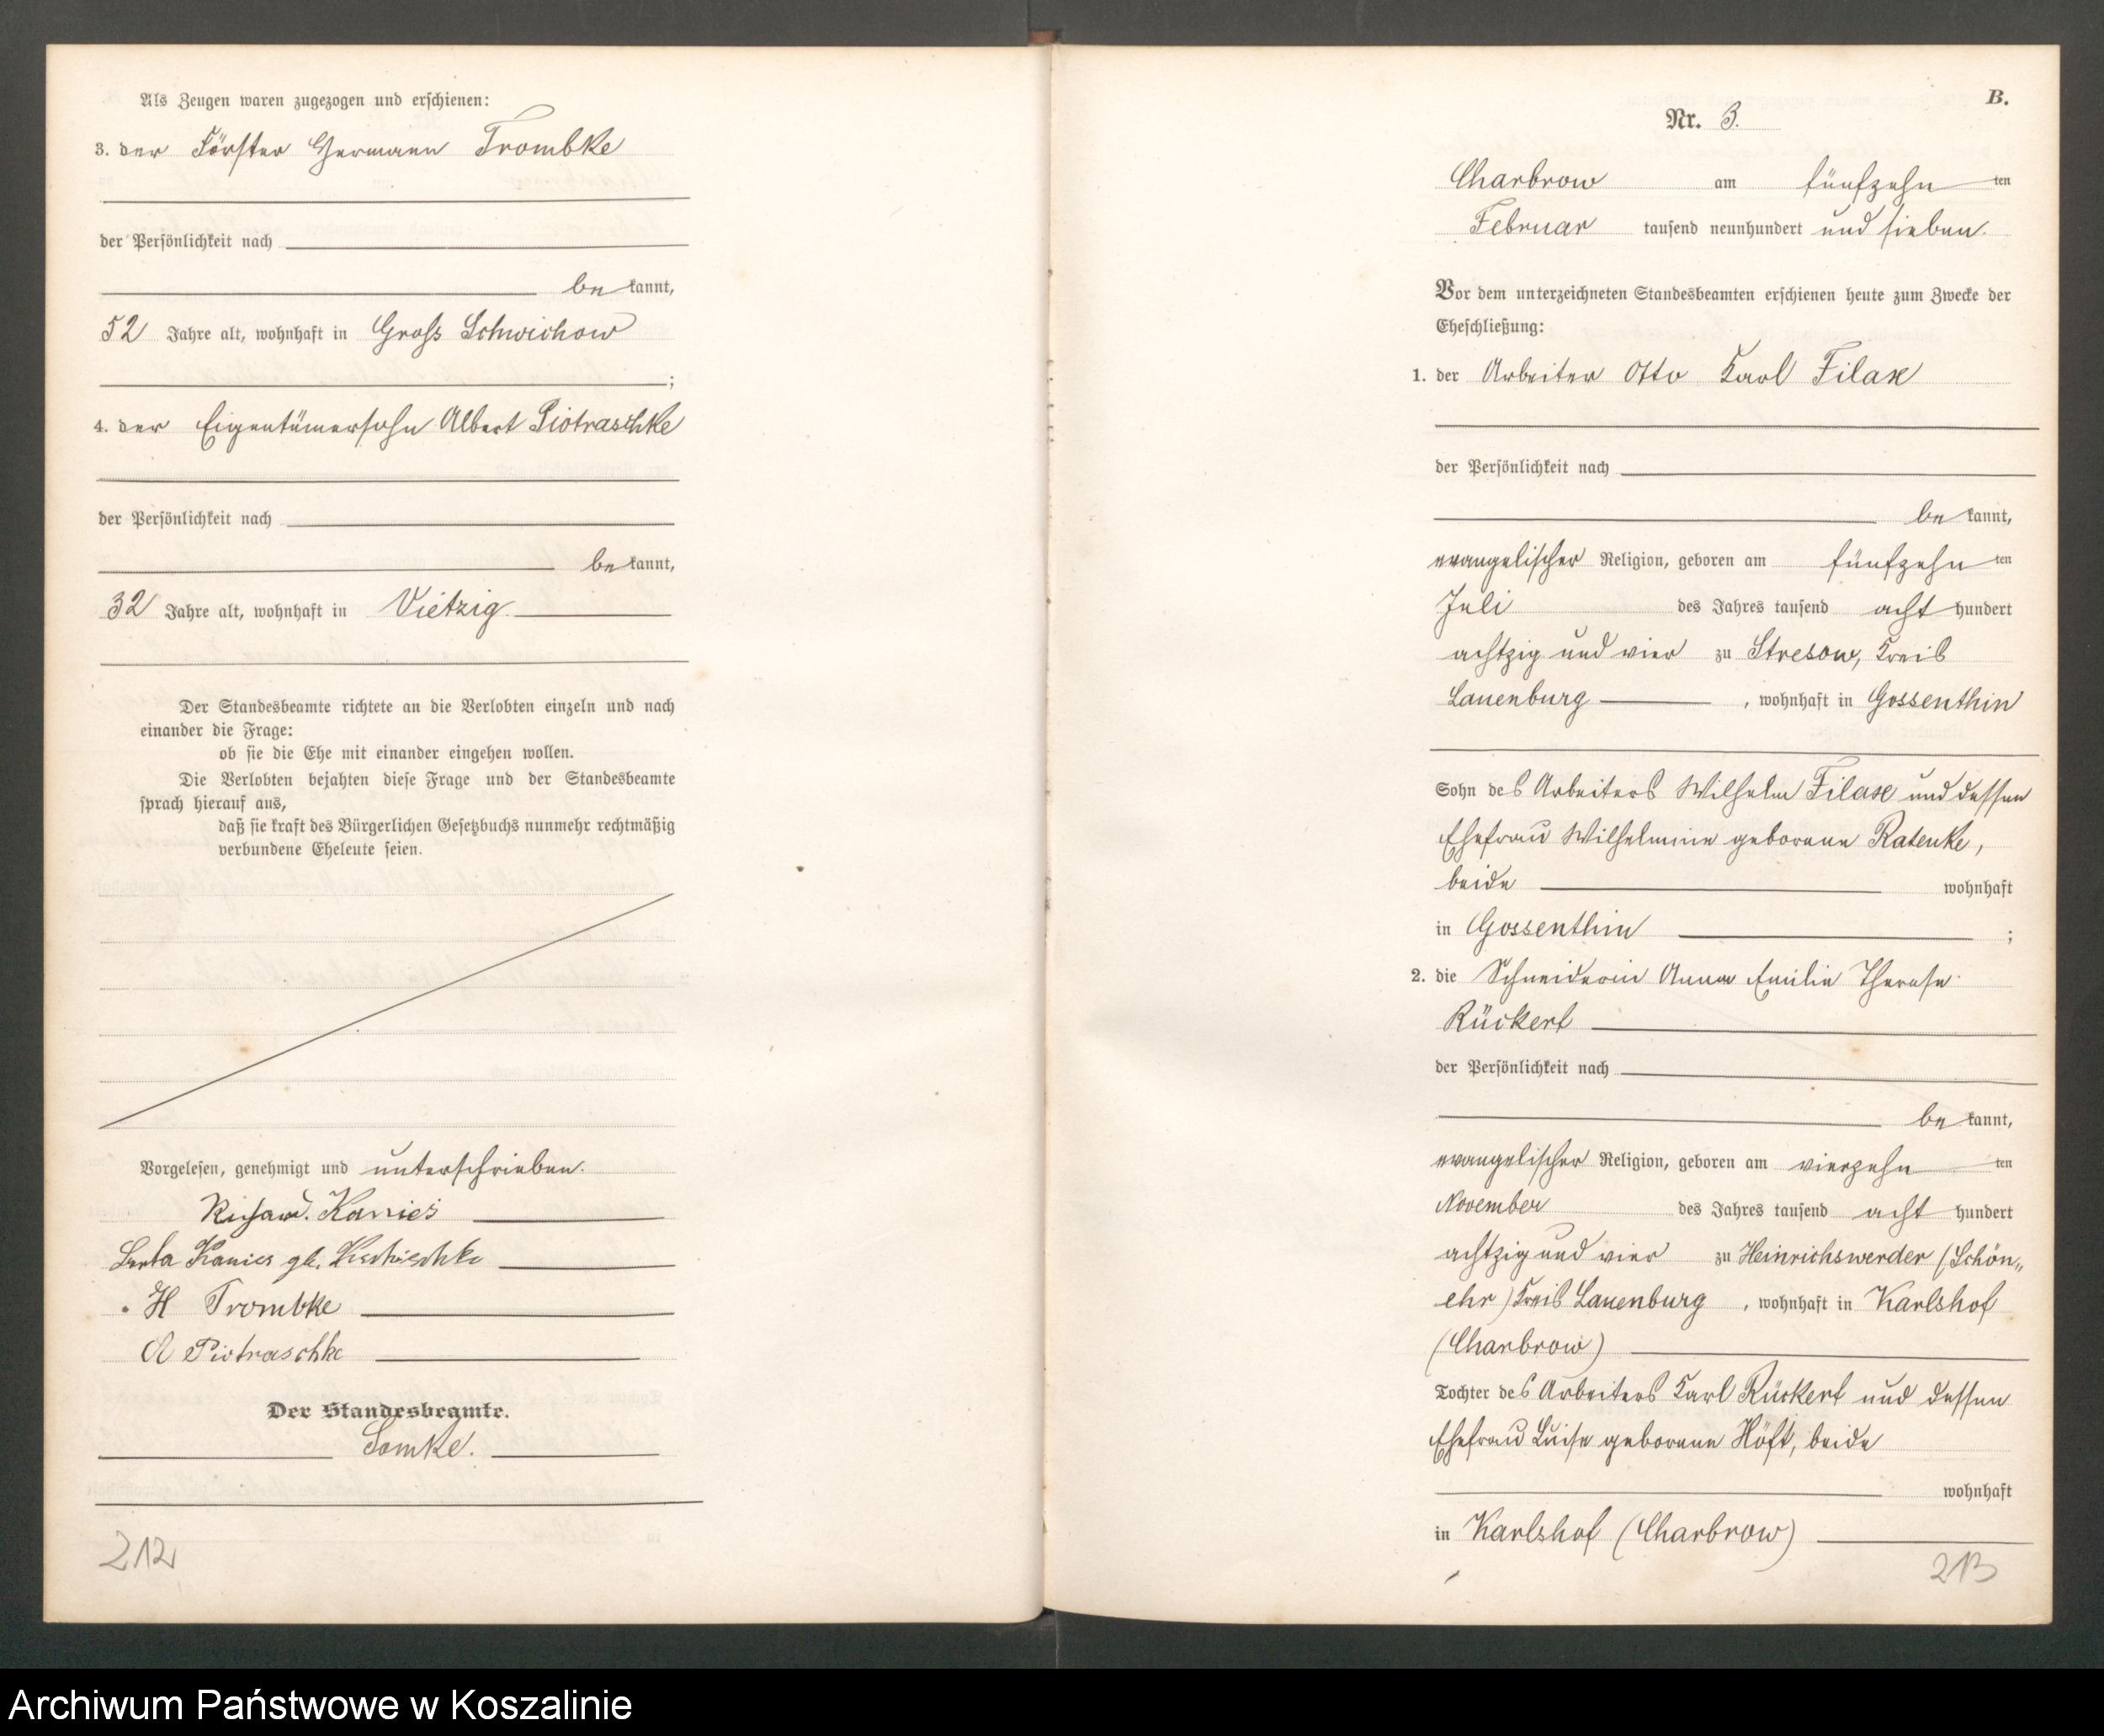 Als Zeugen waren zugezogen und erschienen:
3. der Förster Hermann Trombke
der Persönlichkeit nach
be kannt,
52 Jahre alt, wohnhaft in Gross Schwichow
;
4. der Eigentümersohn Albert Piotraschke
der Persönlichkeit nach
be kannt,
32 Jahre alt, wohnhaft in Vietzig.
Der Standesbeamte richtete an die Verlobten einzeln und nach
einander die Frage:
ob sie die Ehe mit einander eingehen wollen.
Die Verlobten bejahten diese Frage und der Standesbeamte
sprach hierauf aus,
daß sie kraft des Bürgerlichen Gesetzbuchs nunmehr rechtmäßig
verbundene Eheleute seien.
Vorgelesen, genehmigt und unterschrieben.
Richard. Kanies
Kanies
H Trombke
A Piotraschke
Der Standesbeamte.
212
B.
Nr. 3.
Charbrow am fünfzehn ten
Februar tausend neunhundert und sieben.
Vor dem unterzeichneten Standesbeamten erschienen heute zum Zwecke der
Eheschließung:
1. der Arbeiter Otto Karl Filax
der Persönlichkeit nach
be kannt,
evangelischer Religion, geboren am fünfzehn ten
Juli des Jahres tausend acht hundert
achtzig und vier zu Stresow, Kreis
Lauenburg , wohnhaft in Gossenthin
Sohn des Arbeiters Wilhelm Filax und dessen
Ehefrau Wilhelmine geborene Ratenke,
beide wohnhaft
in Gossenthin ;
2. die Schneiderin Anna Emilie Therese
Rückert
der Persönlichkeit nach
be kannt,
evangelischer Religion, geboren am vierzehn ten
November des Jahres tausend acht hundert
achtzig und vier zu Heinrichswerder (Schön„
ehr) Kreis Lauenburg , wohnhaft in Karlshof
(Charbrow)
Tochter des Arbeiters Karl Rückert und dessen
Ehefrau Luise geborene Höft, beide
wohnhaft
in Karlshof (Charbrow)
213
Archiwum Państwowe w Koszalinie